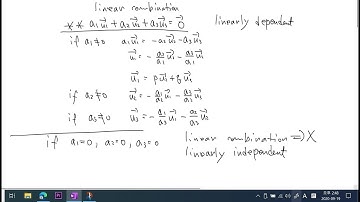 linear combination
** a₁u⃗₁ + a₂u⃗₂ + a₃u⃗₃ = 0⃗ linearly dependent
if a₁≠0 a₁u⃗₁ = -a₂u⃗₂ - a₃u⃗₃
u⃗₁ = -a₂/a₁ u⃗₂ - a₃/a₁ u⃗₃
u⃗₁ = pu⃗₂ + qu⃗₃
if a₂≠0 u⃗₂ = -a₁/a₂ u⃗₁ - a₃/a₂ u⃗₃
if a₃≠0 u⃗₃ = -a₁/a₃ u⃗₁ - a₂/a₃ u⃗₂
if a₁=0, a₂=0, a₃=0 linear combination ⇒ X
linearly independent
오후 2:48
2020-09-16